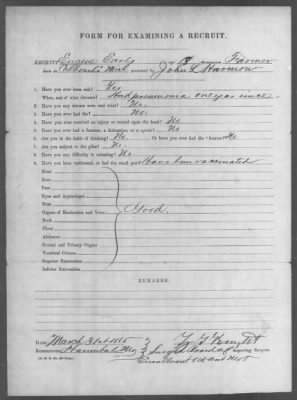 FORM FOR EXAMINING A RECRUIT.
RECRUIT Eugene Early Age 18 Occupation Farmer
Born in Mich. presented by John L
1. Have you ever been sick? Yes
When, and of what disease? Had pneumonia one year since
2. Have you any disease now, and what? No.
3. Have you ever had fits? No.
4. Have you ever received an injury or wound upon the head? No
5. Have you ever had a fracture, a dislocation, or a sprain? No
6. Are you in the habit of drinking? No Or have you ever had the "horrors"? No
7. Are you subject to the piles? No.
8. Have you any difficulty in urinating? No
9. Have you been vaccinated, or had the small pox? Have been vaccinated
Head
Ears
Eyes and Appendages
Nose
Mouth
Organs of Mastication and Voice Good.
Neck
Chest
Abdomen
Genital and Urinary Organs
Vertebral Column
Superior Extremities
Inferior Extremities
REMARKS.
DATE March 31st 1865
RENDEZVOUS Hannibal Mo Surg Board of Inspecting Surgeon
Enrollment 8th Dist Mo